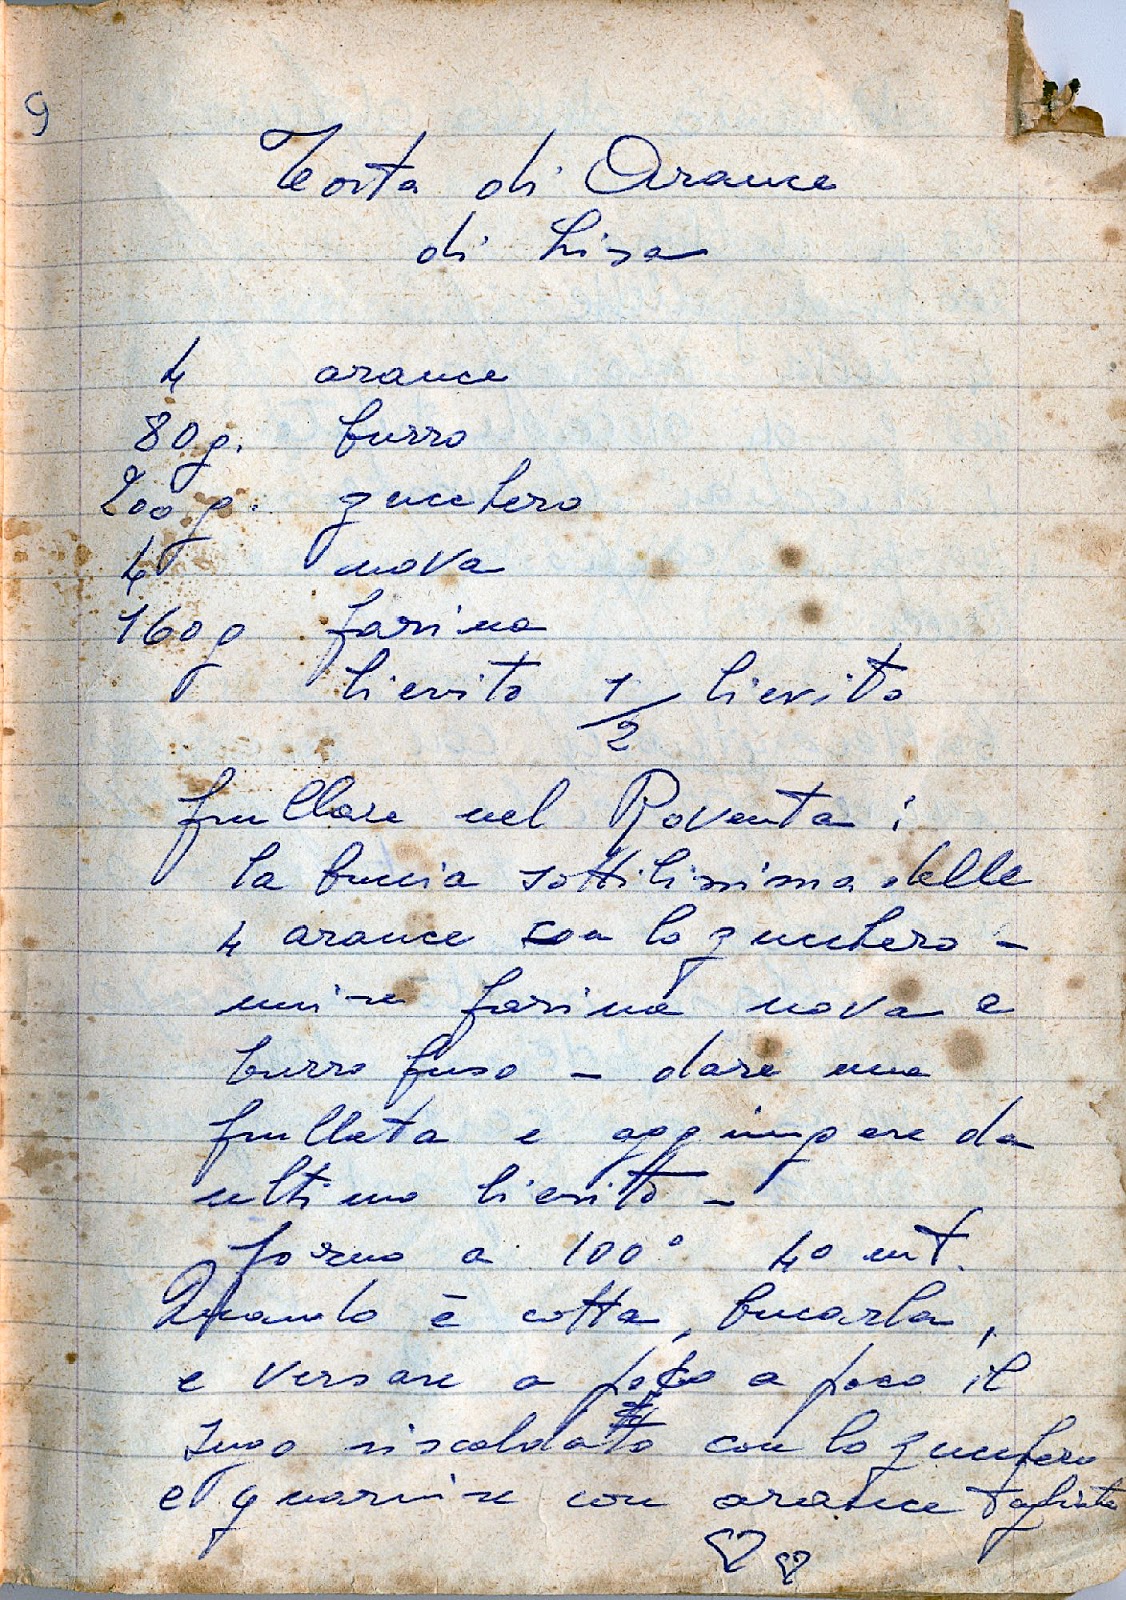 9
Torta di Arance
di Lisa
4 arance
80g. burro
200g. zucchero
4 uova
160g farina
lievito 1/2 lievito
frullare nel Rowenta :
la buccia sottilissima delle
4 arance con lo zucchero -
unire farina uova e
burro fuso - dare una
frullata e aggiungere da
ultimo lievito -
forno a 100° 40 mt.
Quando è cotta, bucarla,
e versare a poco a poco il
sugo riscaldato con lo zucchero
e guarnire con arance tagliate